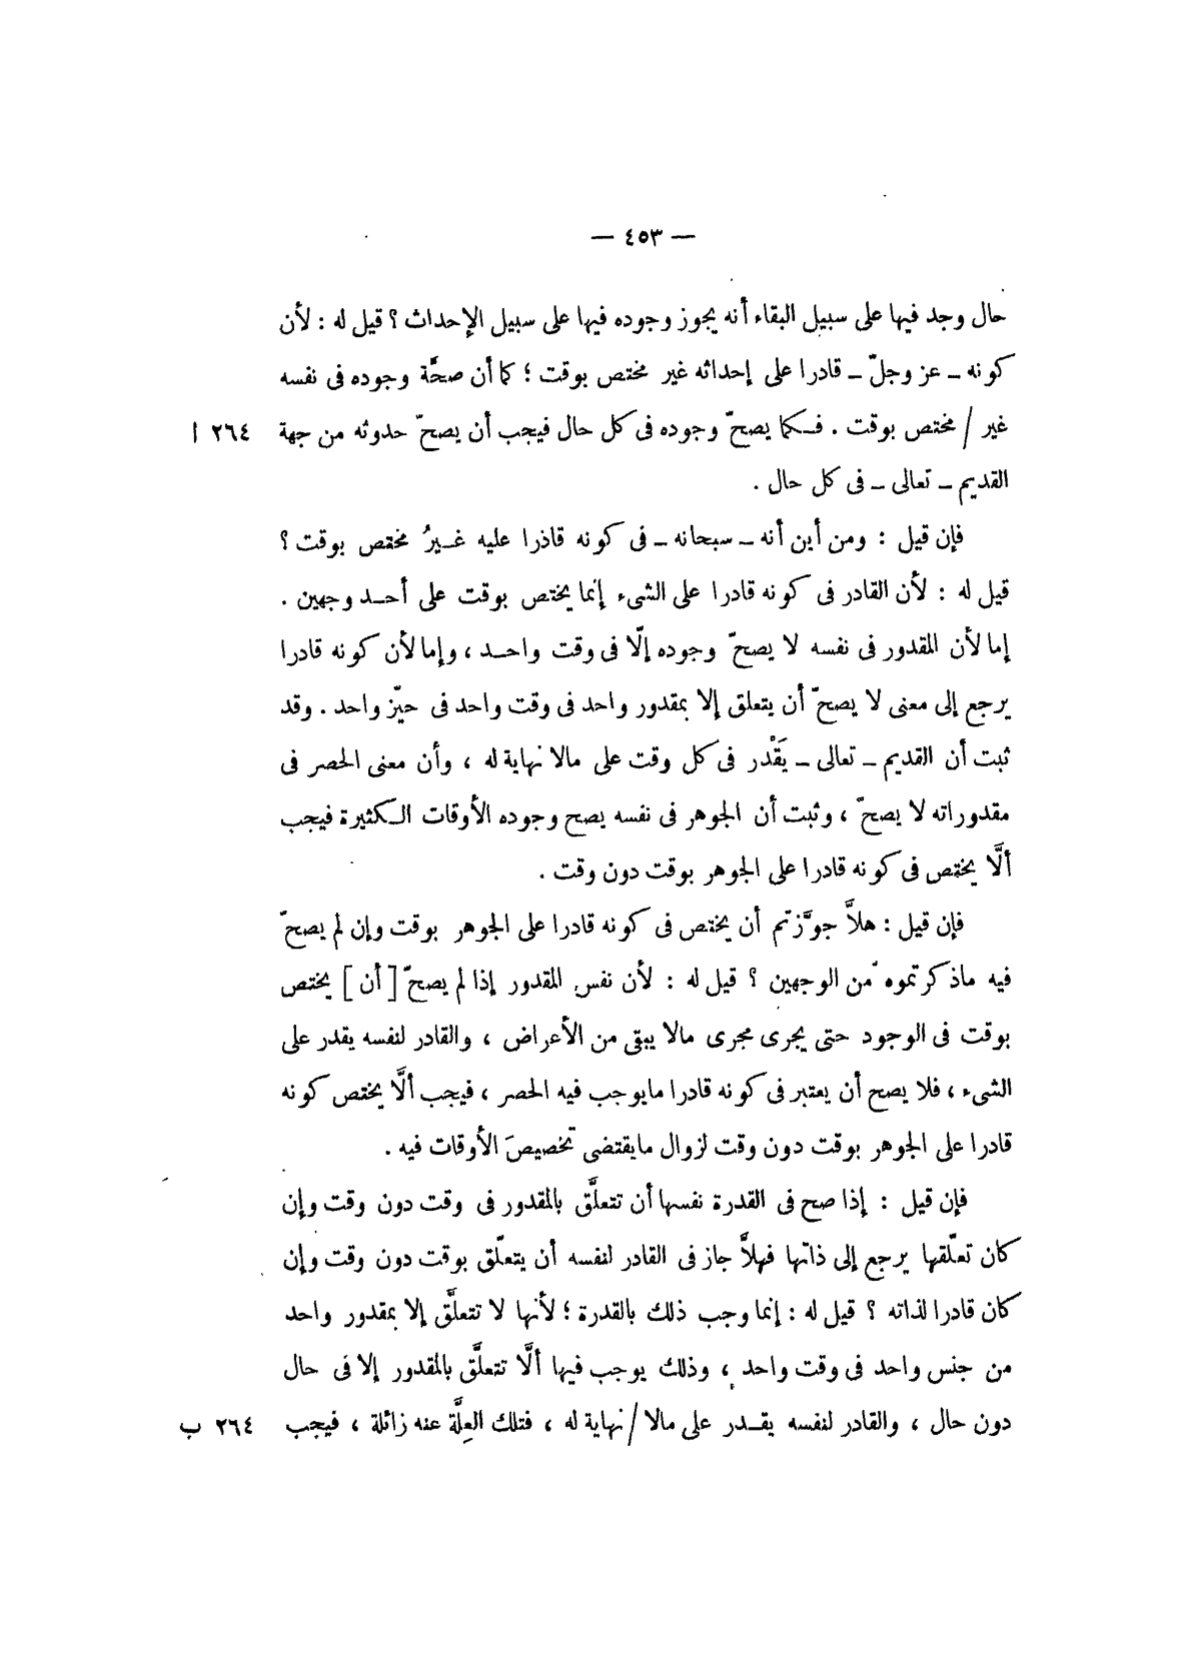 — ٤٥٣ —
حال وجد فيها على سبيل البقاء أنه يجوز وجوده فيها على سبيل الإحداث ؟ قيل له : لأن
كونه – عز وجلّ – قادرا على إحداثه غير مختص بوقت ؛ كما أن صحَّة وجوده فى نفسه
غير / مختص بوقت . فـكما يصحّ وجوده فى كل حال فيجب أن يصحّ حدوثه من جهة ٢٦٤ ا
القديم – تعالى – فى كل حال .
فإن قيل : ومن أين أنه – سبحانه – فى كونه قاذرا عليه غـيرُ مختص بوقت ؟
قيل له : لأن القادر فى كونه قادرا على الشىء إنما يختص بوقت على أحـد وجهين .
إما لأن المقدور فى نفسه لا يصحّ وجوده إلّا فى وقت واحـد ، وإما لأن كونه قادرا
يرجع إلى معنى لا يصحّ أن يتعلق إلا بمقدور واحد فى وقت واحد فى حيّز واحد . وقد
ثبت أن القديم – تعالى – يَقْدر فى كل وقت على مالا نهاية له ، وأن معنى الحصر فى
مقدوراته لا يصحّ ، وثبت أن الجوهر فى نفسه يصح وجوده الأوقات الـكثيرة فيجب
ألَّا يختص فى كونه قادرا على الجوهر بوقت دون وقت .
فإن قيل : هلاَّ جوَّزتم أن يختص فى كونه قادرا على الجوهر بوقت وإن لم يصحّ
فيه ماذكرتموه من الوجهين ؟ قيل له : لأن نفس المقدور إذا لم يصحّ [ أن ] يختص
بوقت فى الوجود حتى يجرى مجرى مالا يبقى من الأعراض ، والقادر لنفسه يقدر على
الشىء ، فلا يصح أن يعتبر فى كونه قادرا مايوجب فيه الحصر ، فيجب ألَّا يختص كونه
قادرا على الجوهر بوقت دون وقت لزوال مايقتضى تخصيصَ الأوقات فيه .
فإن قيل : إذا صح فى القدرة نفسها أن تتعلَّق بالمقدور فى وقت دون وقت وإن
كان تعلّقها يرجع إلى ذاتها فهلاَّ جاز فى القادر لنفسه أن يتعلّق بوقت دون وقت وإن
كان قادرا لذاته ؟ قيل له : إنما وجب ذلك بالقدرة ؛ لأنها لا تتعلَّق إلا بمقدور واحد
من جنس واحد فى وقت واحد ، وذلك يوجب فيها ألَّا تتعلَّق بالمقدور إلا فى حال
دون حال ، والقادر لنفسه يقـدر على مالا / نهاية له ، فتلك العِلَّة عنه زائلة ، فيجب ٢٦٤ ب